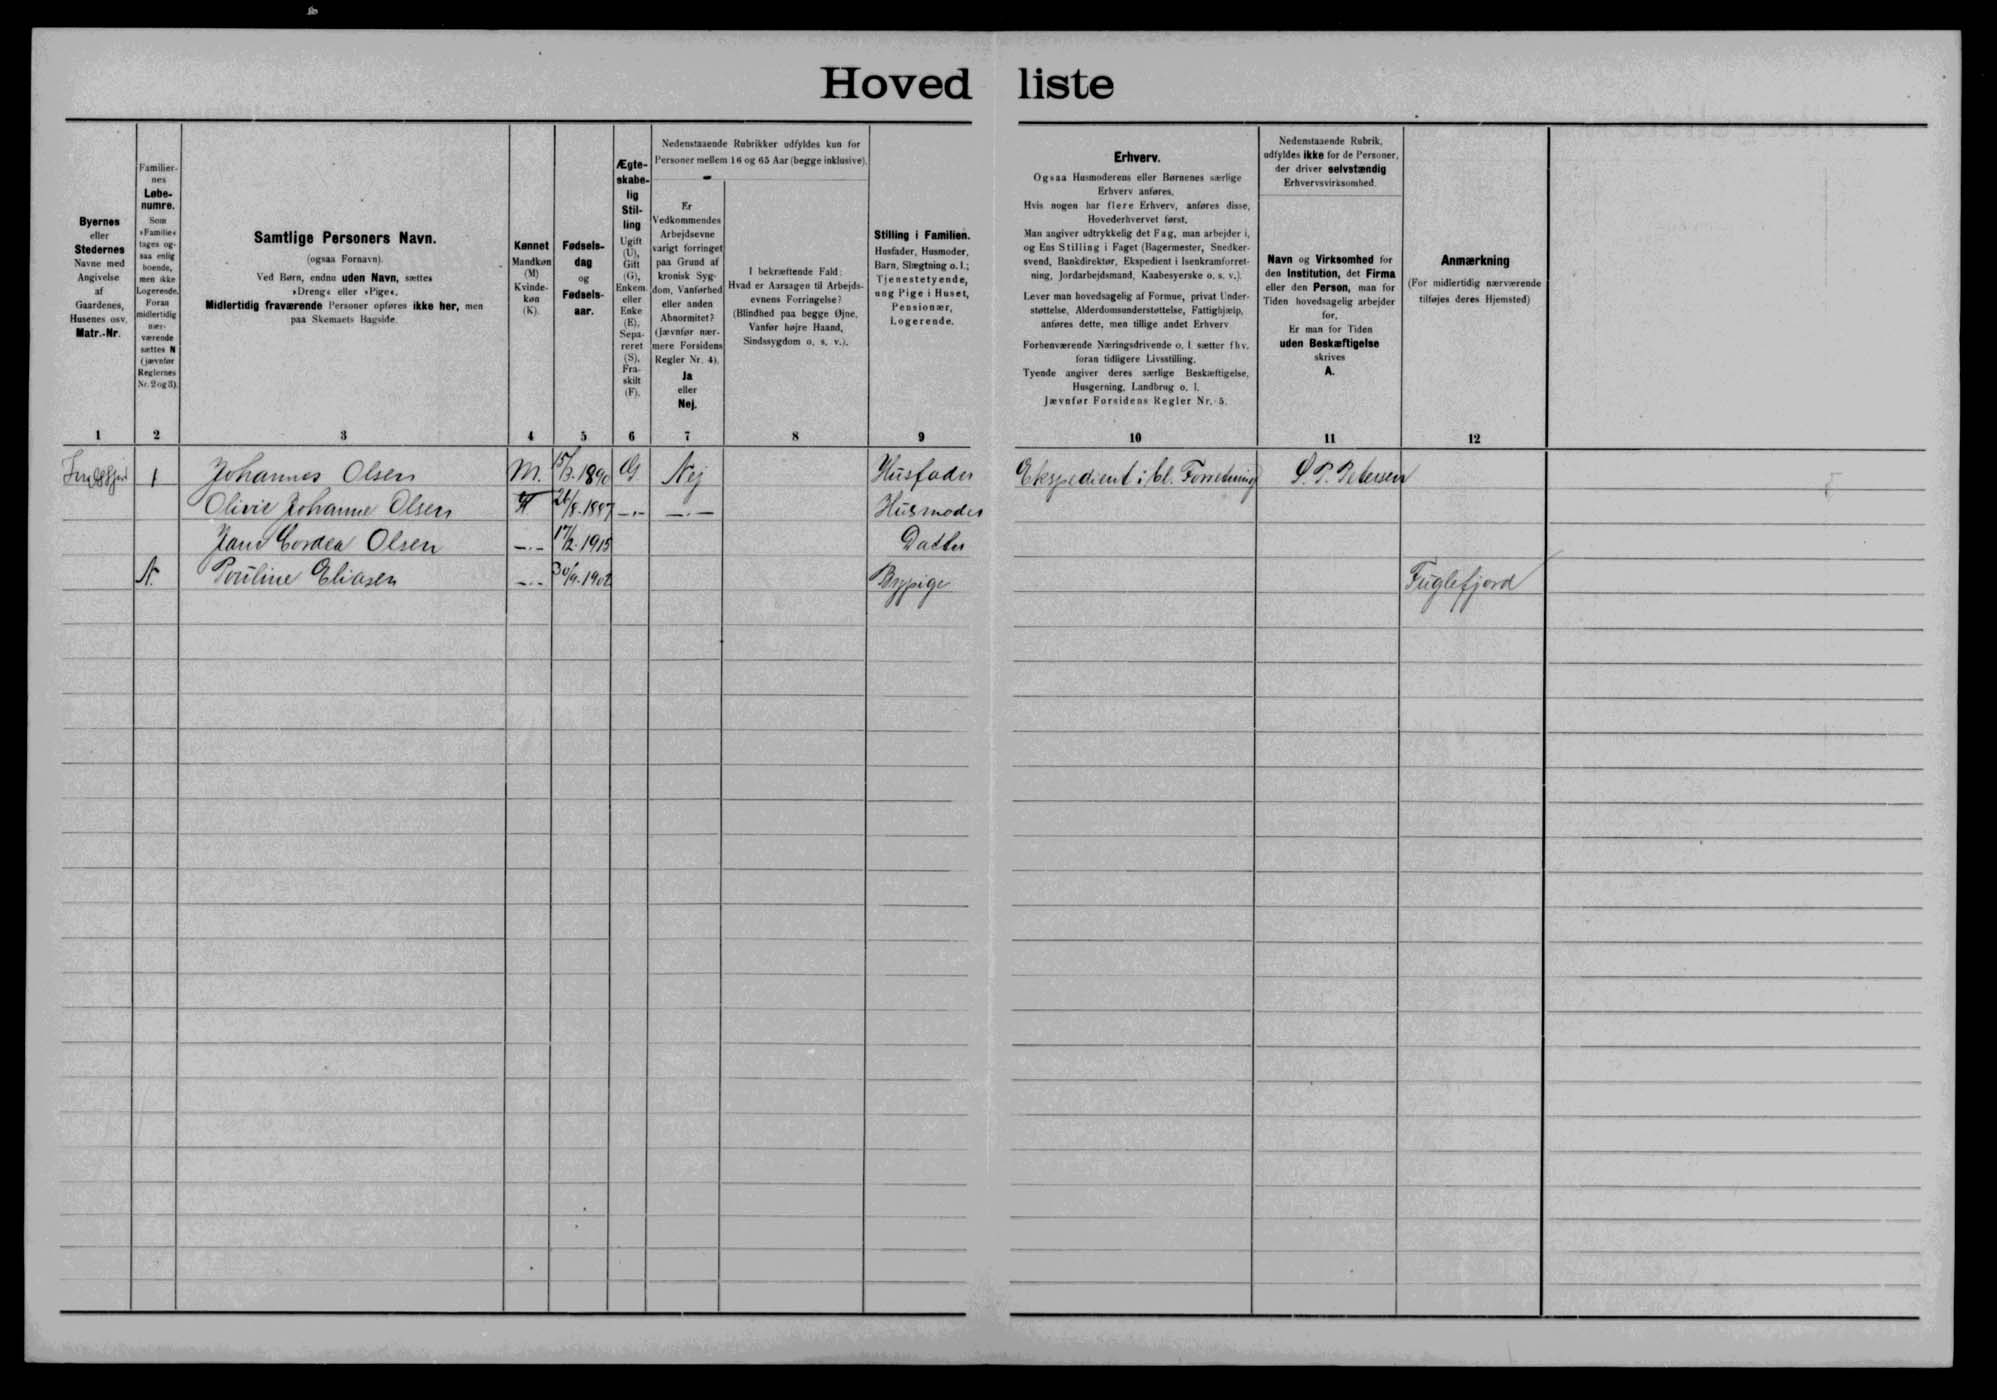 Hovedliste
Byernes
eller
Stedernes
Navne med
Angivelse
af
Gaardenes,
Husenes osv.
Matr.-Nr.
Familier-
nes
Løbe-
numre.
Som
»Familie«
tages og-
saa enlig
boende,
men ikke
Logerende.
Foran
midlertidig
nær-
værende
sættes N
(jævnfør
Reglernes
Nr. 2 og 3).
Samtlige Personers Navn.
(ogsaa Fornavn).
Ved Børn, endnu uden Navn, sættes
»Dreng« eller »Pige«.
Midlertidig fraværende Personer opføres ikke her, men
paa Skemaets Bagside.
Kønnet
Mandkøn
(M)
Kvinde-
køn
(K).
Fødsels-
dag
og
Fødsels-
aar.
Ægte-
skabe-
lig
Stil-
ling
Ugift
(U),
Gift
(G),
Enkem.
eller
Enke
(E),
Sepa-
reret
(S),
Fra-
skilt
(F).
Nedenstaaende Rubrikker udfyldes kun for
Personer mellem 16 og 65 Aar (begge inklusive).
Er
Vedkommendes
Arbejdsevne
varigt forringet
paa Grund af
kronisk Syg-
dom, Vanførhed
eller anden
Abnormitet?
(Jævnfør nær-
mere Forsidens
Regler Nr. 4).
Ja
eller
Nej.
I bekræftende Fald:
Hvad er Aarsagen til Arbejds-
evnens Forringelse?
(Blindhed paa begge Øjne,
Vanfør højre Haand,
Sindssygdom o. s. v.).
Stilling i Familien.
Husfader, Husmoder,
Barn, Slægtning o. l.;
Tjenestetyende,
ung Pige i Huset,
Pensionær,
Logerende.
Erhverv.
Ogsaa Husmoderens eller Børnenes særlige
Erhverv anføres.
Hvis nogen har flere Erhverv, anføres disse,
Hovederhvervet først.
Man angiver udtrykkelig det Fag, man arbejder i,
og Ens Stilling i Faget (Bagermester, Snedker-
svend, Bankdirektør, Ekspedient i Isenkramforret-
ning, Jordarbejdsmand, Kaabesyerske o. s. v.).
Lever man hovedsagelig af Formue, privat Under-
støttelse, Alderdomsunderstøttelse, Fattighjælp,
anføres dette, men tillige andet Erhverv
Forhenværende Næringsdrivende o. l. sætter fhv.
foran tidligere Livsstilling.
Tyende angiver deres særlige Beskæftigelse,
Husgerning, Landbrug o. l.
Jævnfør Forsidens Regler Nr. 5.
Nedenstaaende Rubrik,
udfyldes ikke for de Personer,
der driver selvstændig
Erhvervsvirksomhed.
Navn og Virksomhed for
den Institution, det Firma
eller den Person, man for
Tiden hovedsagelig arbejder
for.
Er man for Tiden
uden Beskæftigelse
skrives
A.
Anmærkning
(For midlertidig nærværende
tilføjes deres Hjemsted)
1 2 3 4 5 6 7 8 9 10 11 12
1 Johannes Olsen M. 15/3. 1890 G Nej Husfader Ekspedient i bl. Forretning S. P. Petersen
Olivie Johanne Olsen K /8. 1887 —„— —„— Husmoder
Cordea Olsen —„— 17/2. 1915 Datter
N. Pouline Eliasen —„— 30/9. 1902 Fuglefjord